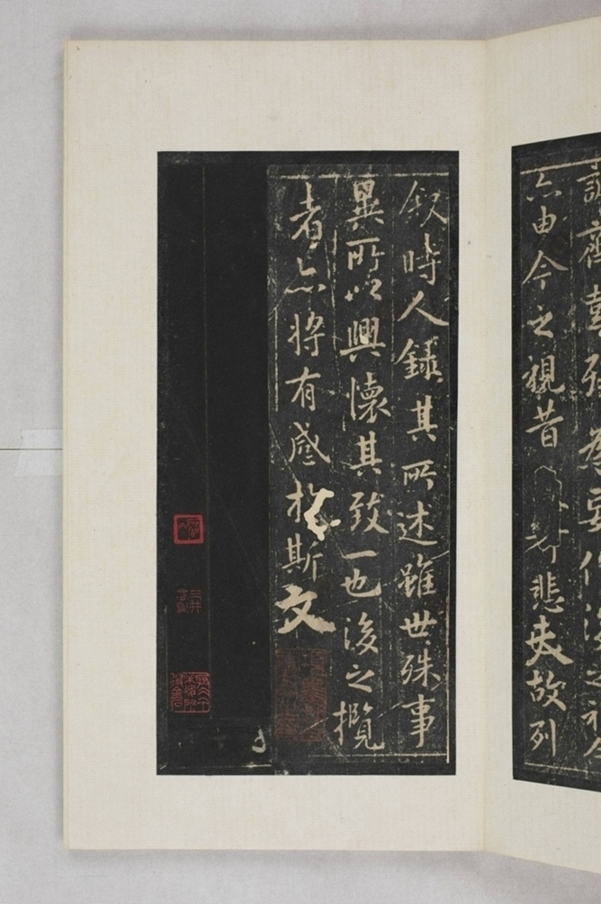 齊彭殤爲妄作後之視今
亦由今之視昔悲夫故列
敘時人錄其所述雖世殊事
異所以興懷其致一也後之攬
者亦將有感於斯文